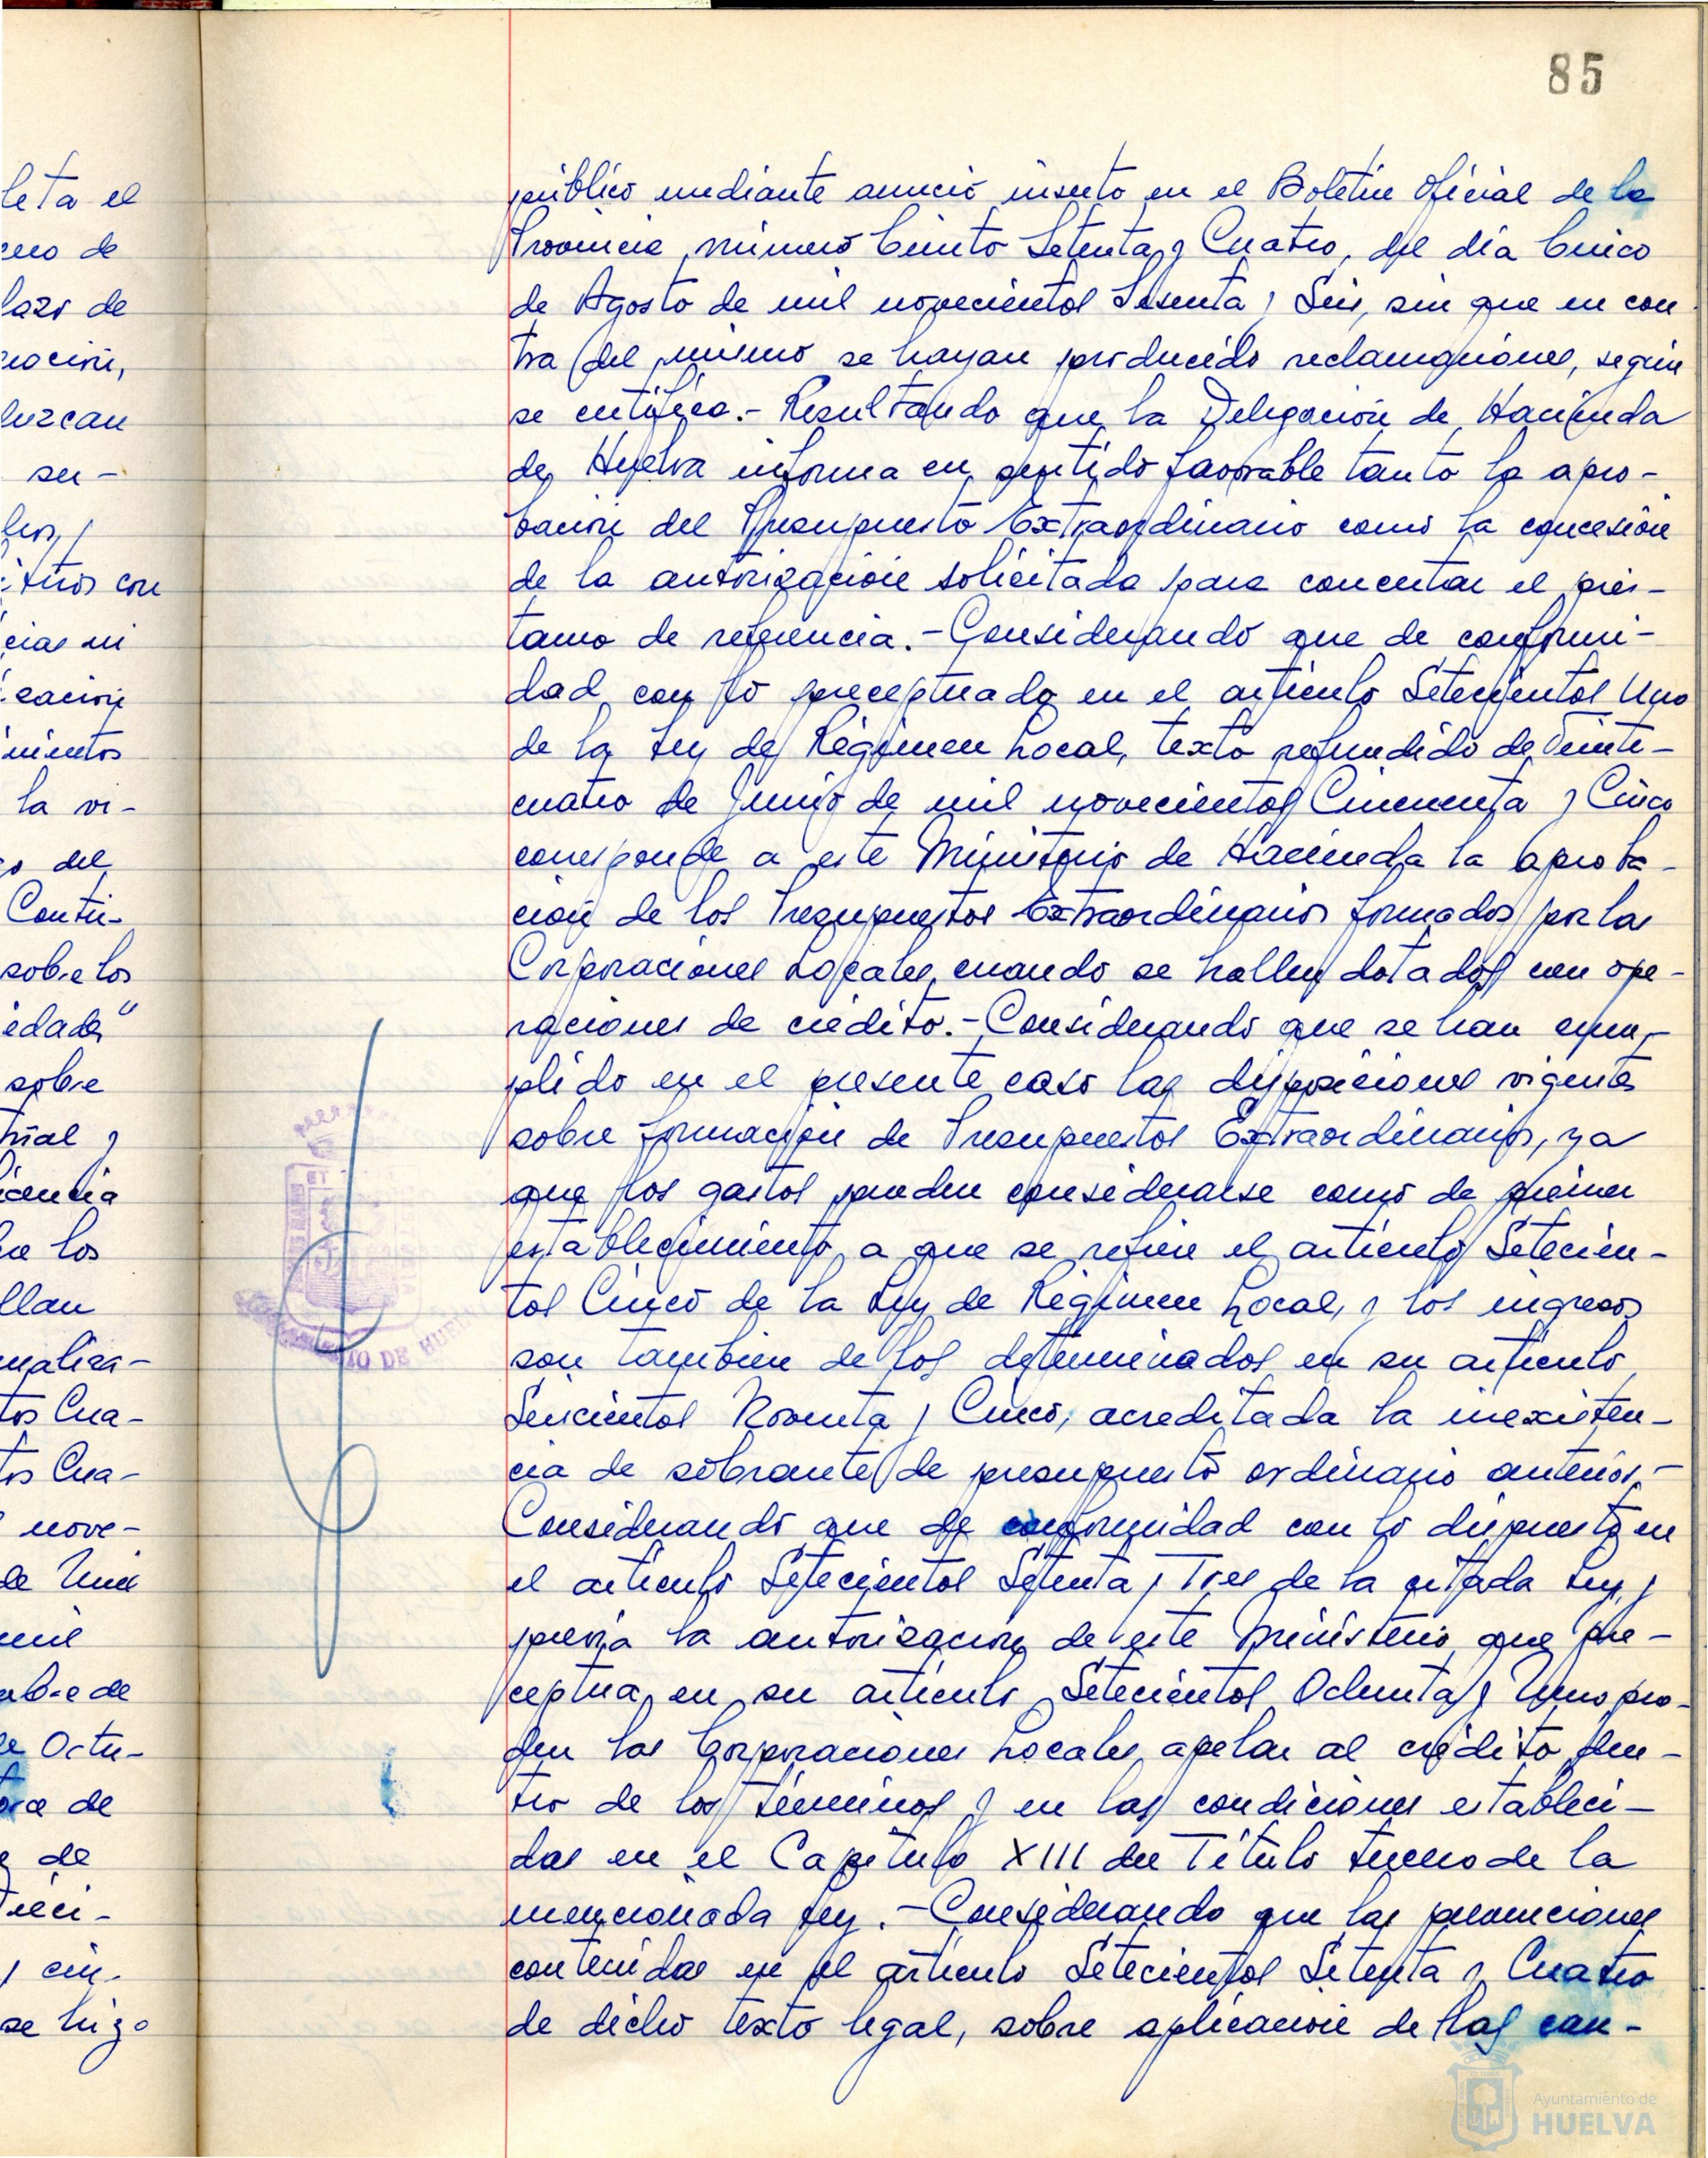 85
público mediante anuncio inserto en el Boletín Oficial de la
Provincia, número Ciento Setenta y Cuatro, del día Cinco
de Agosto de mil novecientos Sesenta y Seis, sin que en con
tra del mismo se hayan producido reclamaciones, según
se certifica.- Resultando que la Delegación de Hacienda
de Huelva informa en sentido favorable tanto la apro-
bación del Presupuesto Extraordinario como la concesión
de la autorización solicitada para concertar el prés-
tamo de referencia.- Considerando que de conformi-
dad con lo preceptuado en el artículo Setecientos Uno
de la Ley de Régimen Local, texto refundido de Veinti-
cuatro de Junio de mil novecientos Cincuenta y Cinco
corresponde a este Ministerio de Hacienda la aproba-
ción de los Presupuestos Extraordinarios formados por las
Corporaciones Locales, cuando se hallen dotados con ope-
raciones de crédito.- Considerando que se han cum-
plido en el presente caso las disposiciones vigentes
sobre formación de Presupuestos Extraordinarios, ya
que los gastos pueden considerarse como de primer
establecimiento, a que se refiere el artículo Setecien-
tos Cinco de la Ley de Régimen Local, y los ingresos
son también de los determinados en su artículo
Seiscientos Noventa y Cinco, acreditada la inexisten-
cia de sobrante de presupuesto ordinario anterior.-
Considerando que de conformidad con lo dispuesto en
el artículo Setecientos Setenta y Tres de la citada Ley, y
previa la autorización de este Ministerio que pre-
ceptua en su artículo Setecientos Ochenta y Uno pro-
den las Corporaciones Locales apelar al crédito den-
tro de los términos y en las condiciones estableci-
das en el Capítulo XIII del Título tercero de la
mencionada Ley.- Considerando que las prevenciones
contenidas en el artículo Setecientos Setenta y Cuatro
de dicho texto legal, sobre aplicación de las can-
leta el
lazo de
luzcan
su-
mientos
la vi-
del
sobre los
sobre
los
tos Cua-
tos Cua-
nove-
Octu-
de
de
se hizo
DE HUELVA
Ayuntamiento de
HUELVA